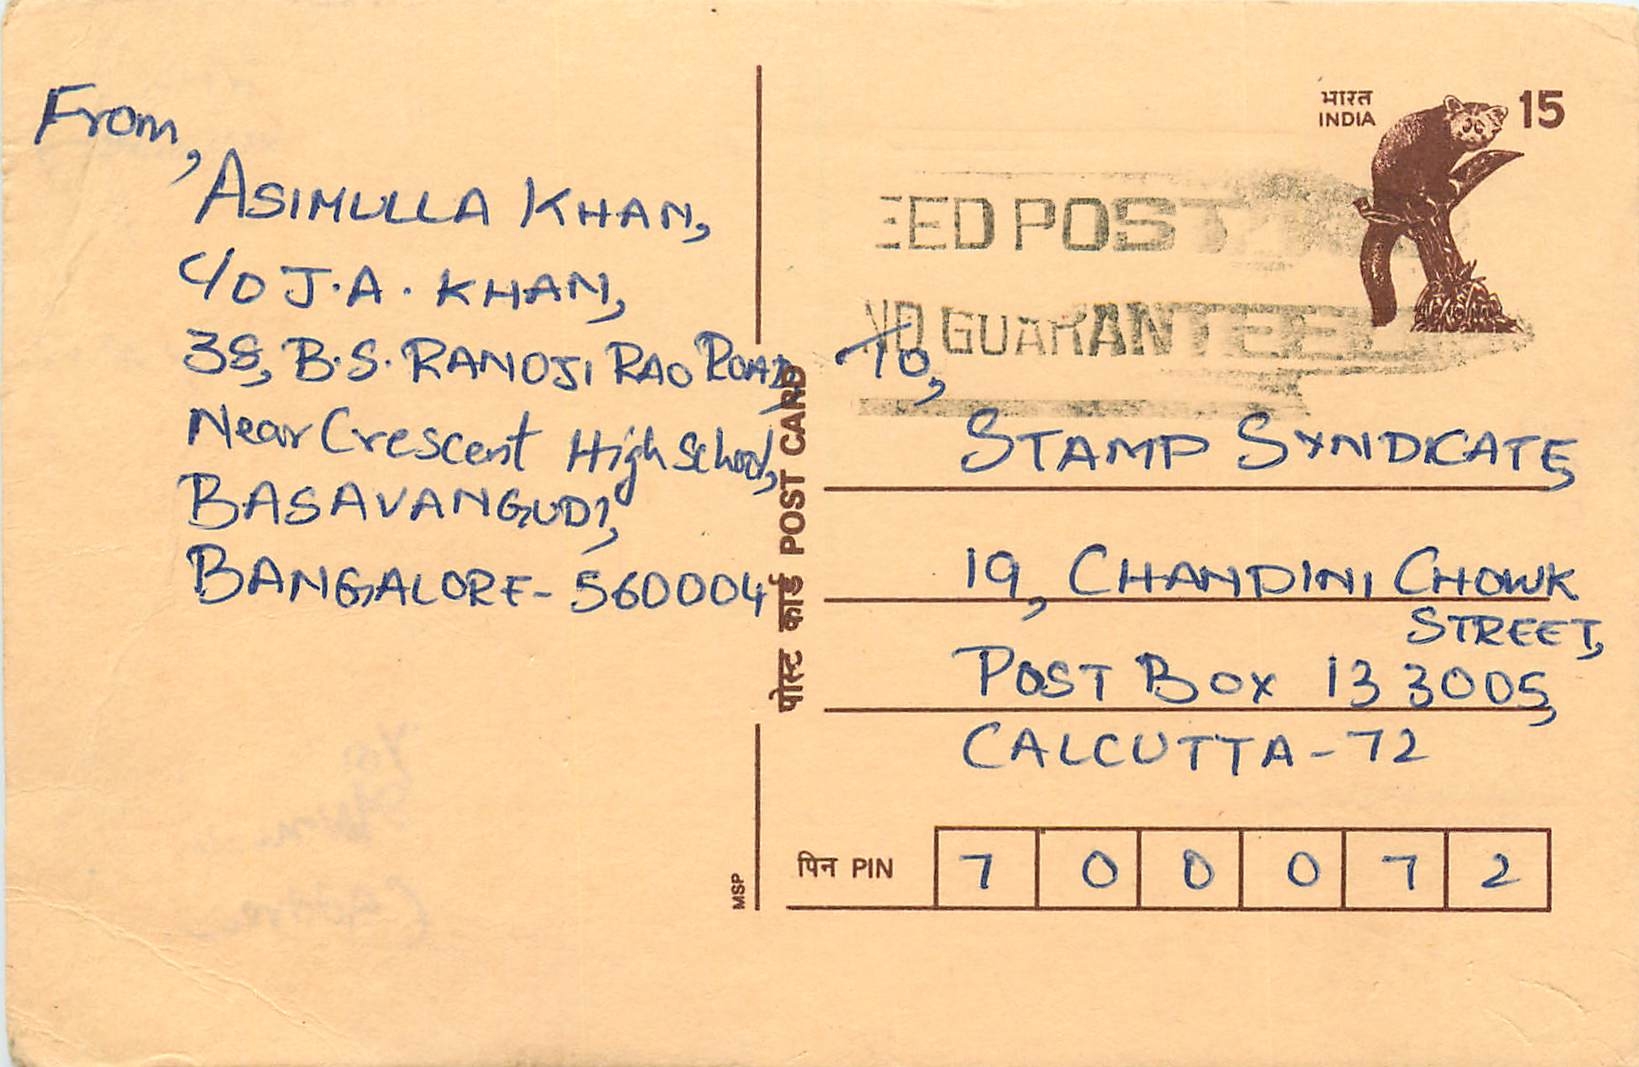 From,
ASIMULLA KHAN,
C/O J.A. KHAN,
38, B.S. RANOJI RAO ROAD,
Near Crescent High School,
BASAVANGUDI,
BANGALORE - 560004
पोस्ट कार्ड POST CARD
MSP
भारत
INDIA
15
EED POST
ND GUARANTEE
To,
STAMP SYNDICATE,
19, CHANDINI CHOWK
STREET,
POST BOX 13 3005,
CALCUTTA - 72
पिन PIN 7 0 0 0 7 2